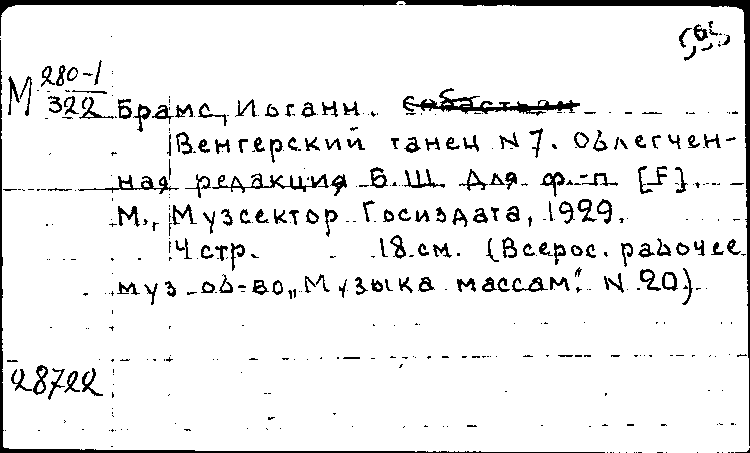 М 280-1
322
Брамс, Иоганн. Себастьян
Венгерский танец N 7. Облегчен-
ная редакция Б.Ш. Для ф.-п [F].
М., Музсектор Госиздата, 1929.
4 стр. 18 см. (Всерос. рабочее
муз об-во „Музыка массам". N 20)
28722